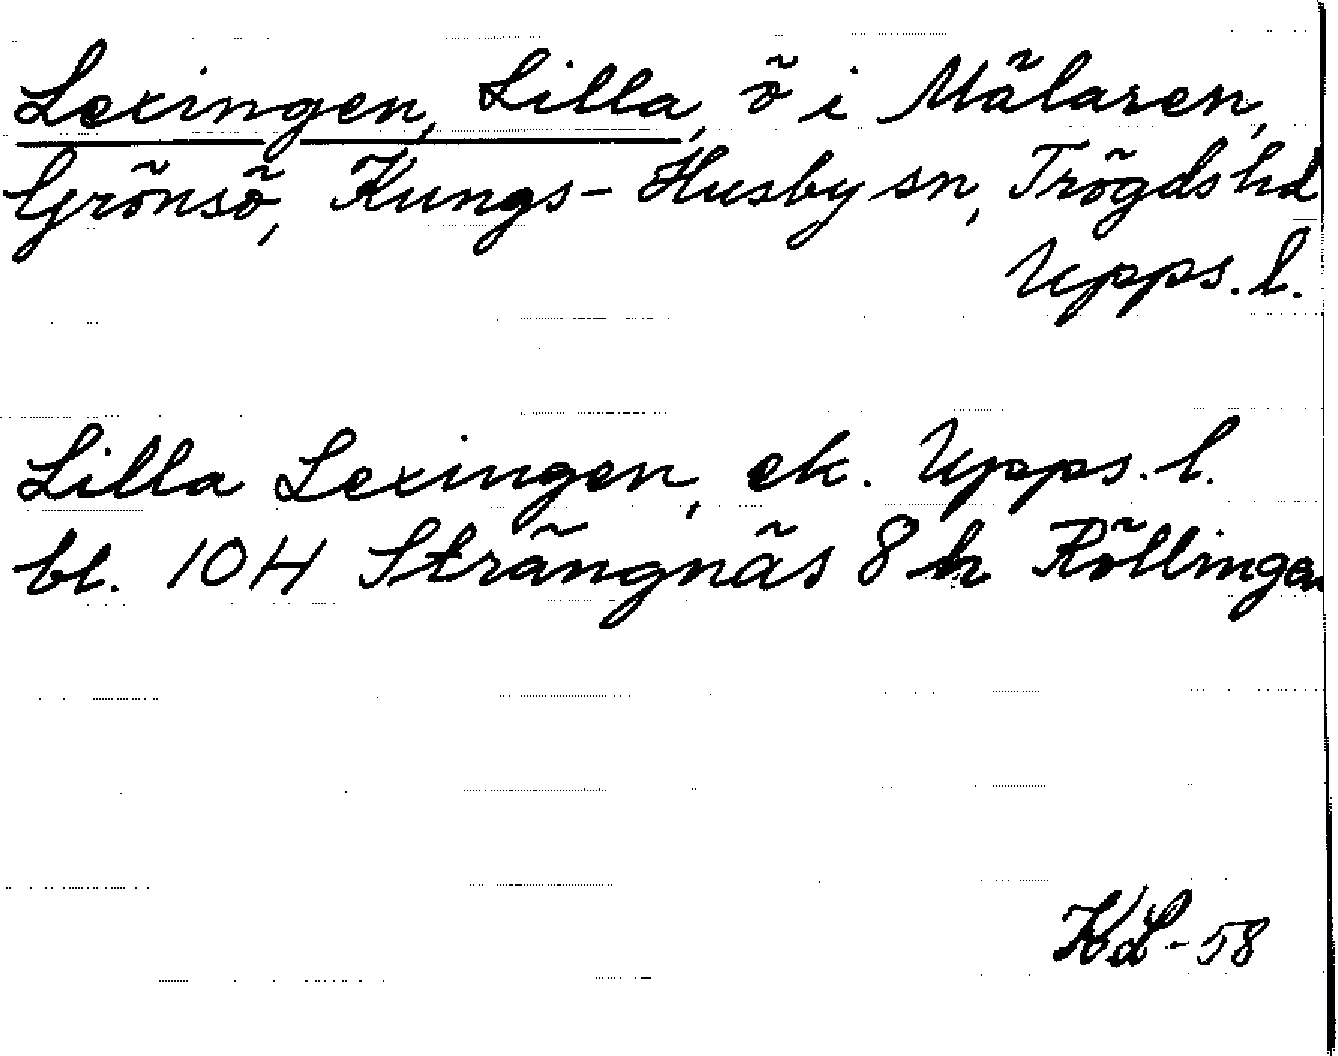 Lexingen, Lilla, ö i Mälaren,
Grönsö, Kungs-Husby sn, Trögds hd
Upps. l.
Lilla Lexingen, ek. Upps. l.
bl. 104 Strängnäs 8 h Röllingen
KL-58